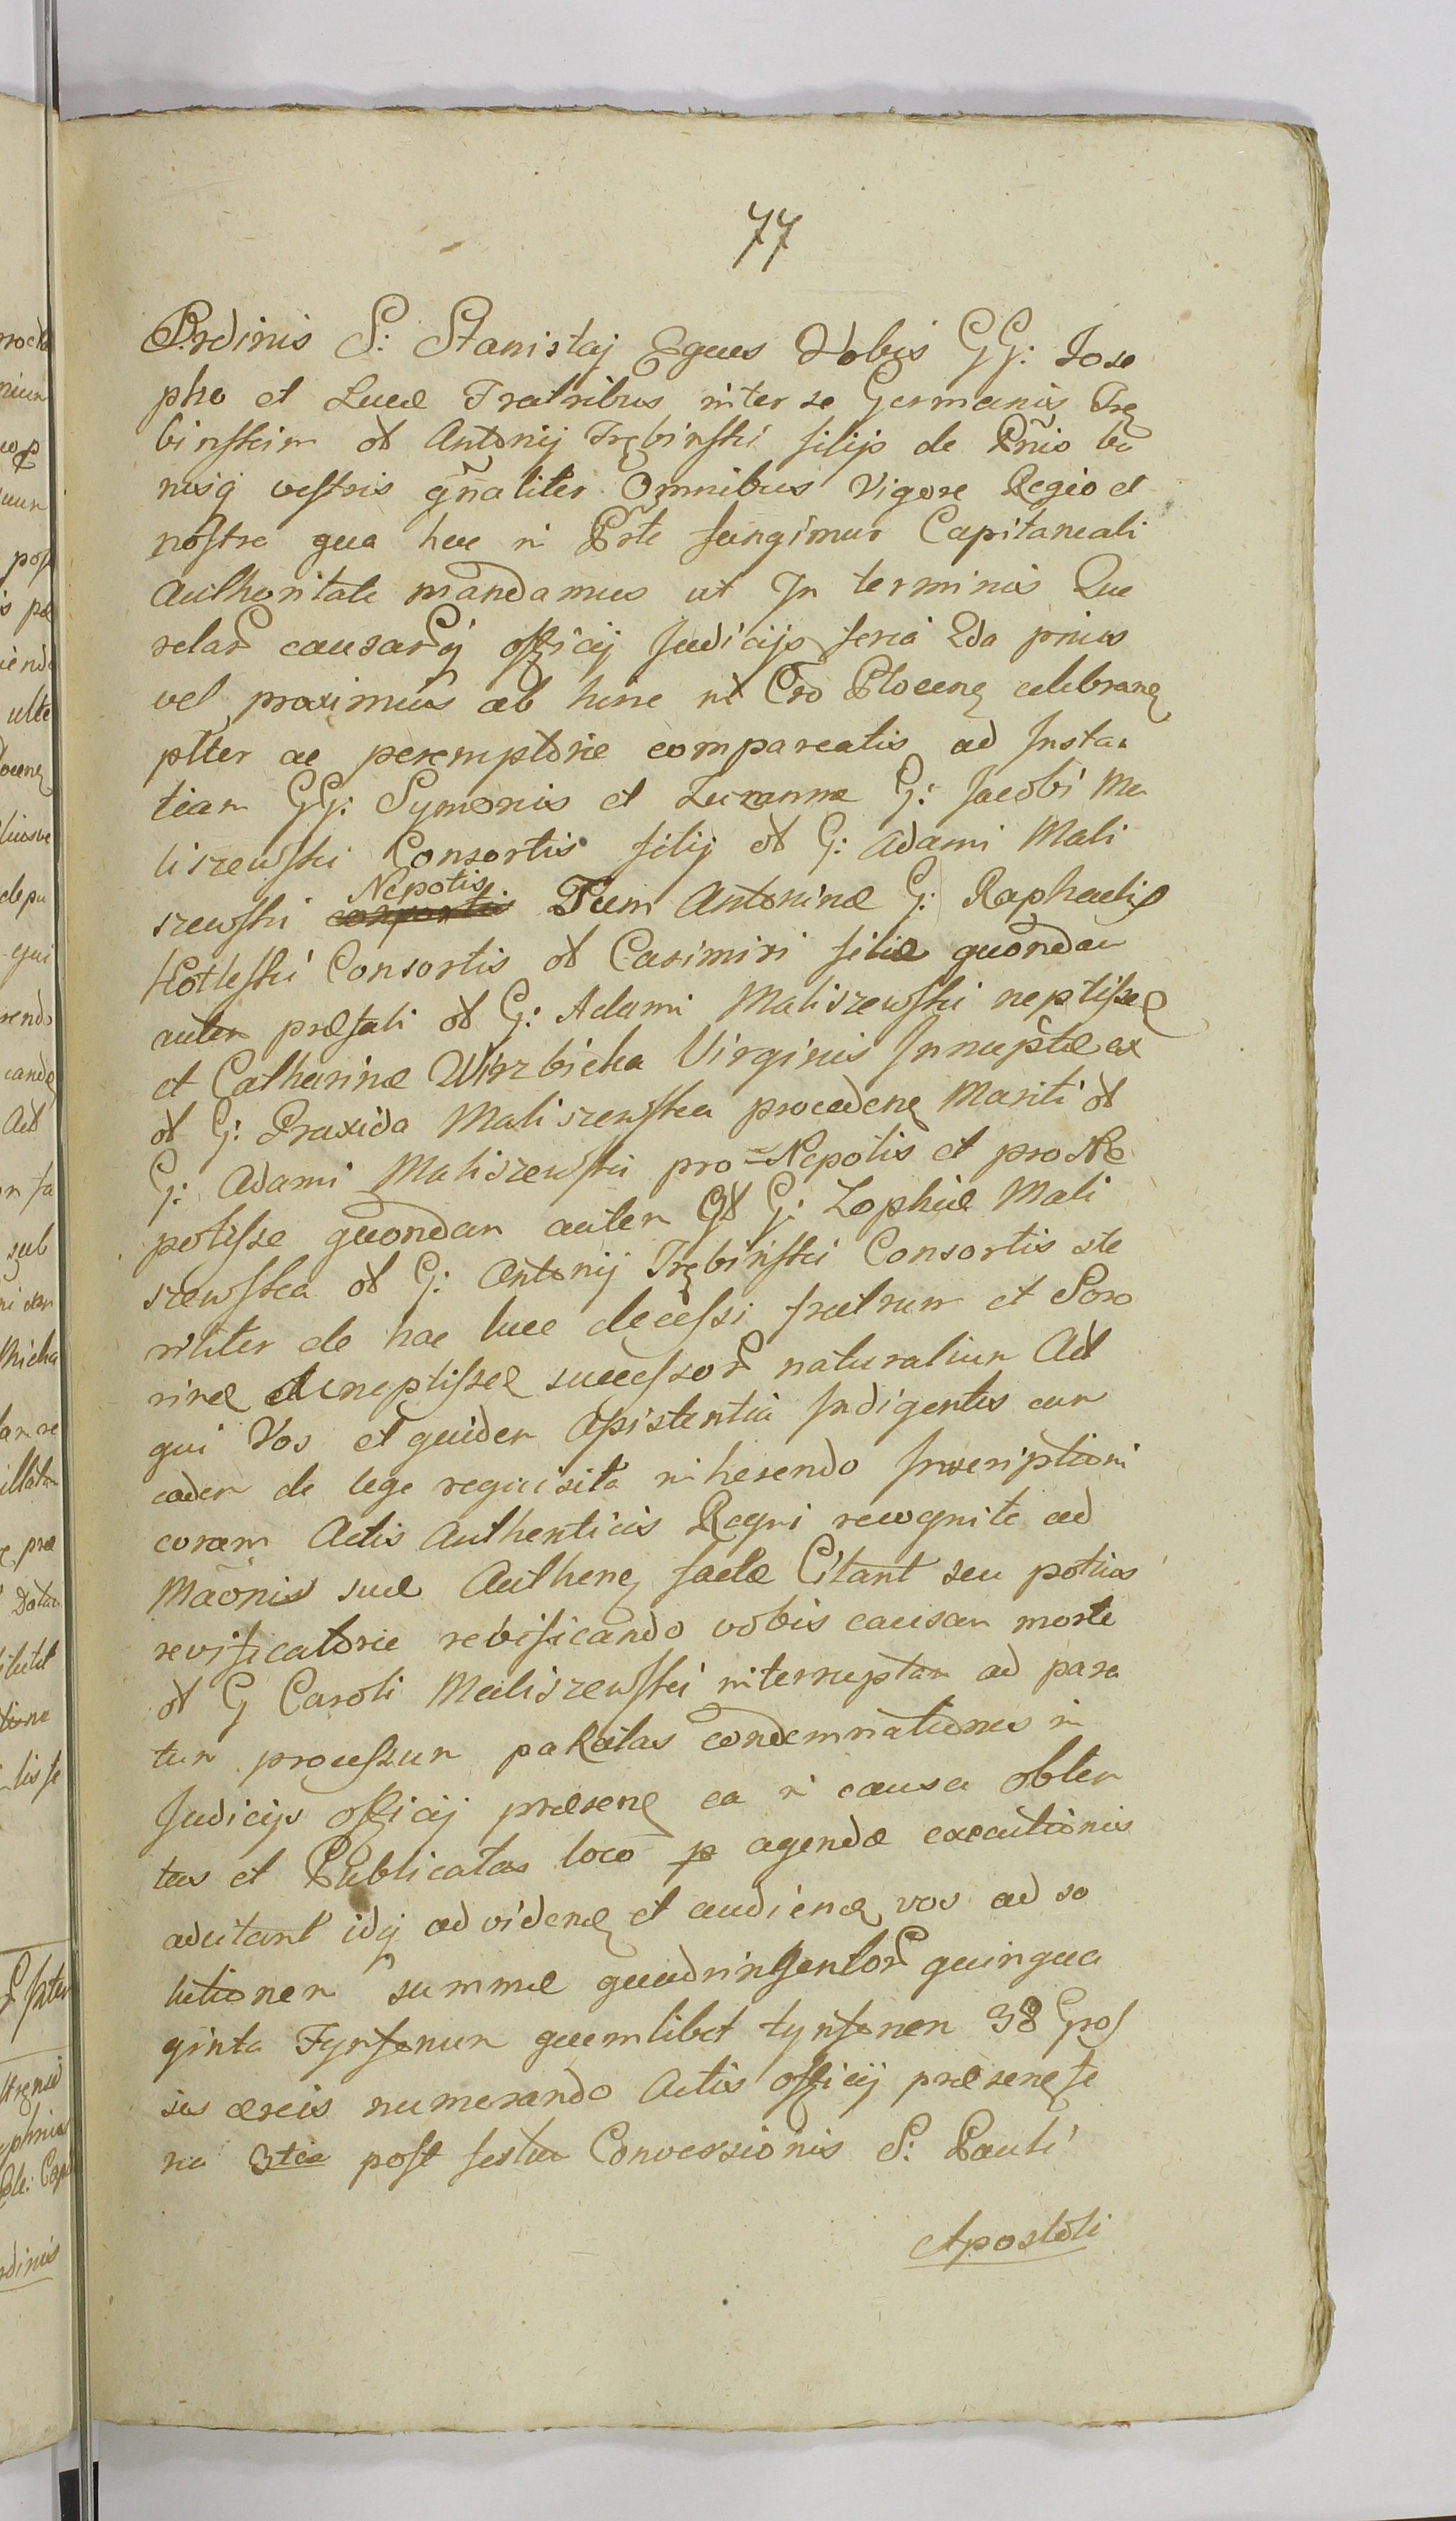 77
Ordinis S: Stanislaj Eques Vobis GG: Jose
pho et Lucæ Fratribus inter se Germanis Trę
binskim ol Antonij Trębinski filijs de Pñis bo
nisq vestris gñaliter Omnibus Vigore Regio et
nostra qua hac in Prte fungimur Capitaneali
Authoritate mandamus ut In terminis Que
relar causarq officij Judicijs feria 2da prius
vel proximius ab hinc in Cro Plocenę celebranę
ptter ac peremptorie compareatis ad Instan
tiam GG: Symonis et Zuzanna G: Jacobi Ma
liszewski Consortis filij ol G: Adami Mali
szewski Nepotis. Tum Antoninæ G: Raphaelis
Kotleski Consortis ol Casimiri filiæ quondam
autem præfati ol G: Adami Maliszewski neptissæ
et Catharinæ Wirzbicka Virginis Innuptæ ex
ol G: Praxida Maliszewska procedenę Mariti ol
G: Adami Maliszewski pro=Nepotis et proNe
potisse quondam autem ol G: Zophiæ Mali
szewska ol G: Antonij Trębinski Consortis ste
riliter de hac luce decessi fratrum et Soro
rinæ et neptissæ successor naturalium Act
qui Vos et quidem Assistentia Indigentes cum
eadem de lege requisita inherendo Inscriptioni
coram Actis Authenticis Regni recognite ad
Mãonis suæ Authenę factæ Citant seu potius
revificatorie revificando vobis causam morte
ol G Caroli Maliszewski interruptam ad para
tum processum paratas condemnationes in
Judicijs officij præsenę ea in causa obten
tas et Publicatas loco p agendæ executionis
adcitant idq ad videnę et audienę vos ad so
lutionem summæ quadringentor quinqua
ginta Tynfonum quemlibet tynfonem 38 Gros
sis æreis numerando Actis officij præsenę fe
ria 3tia post festum Conversionis S: Pauli
Apostoli